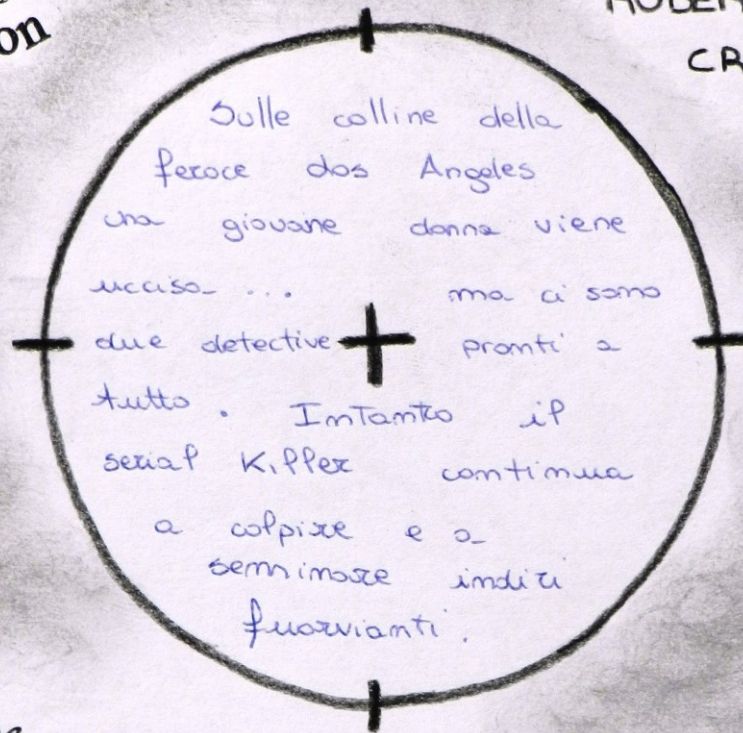 on
CR
Sulle colline della
feroce dos Angeles
una giovane donna viene
uccisa... ma ci sono
due detective pronti a
tutto. Intanto il
serial Killer continua
a colpire e a
semminare indizi
fuorvianti.